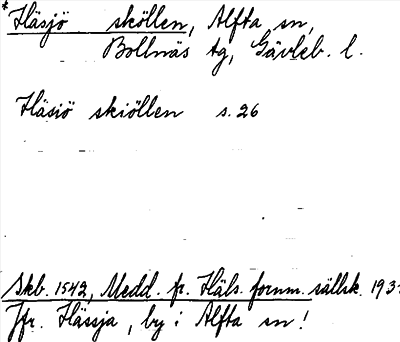 *Häsjö sköllen, Alfta sn,
Bollnäs tg, Gävleb. l.
Häsiö skiöllen s. 26
Skb. 1542, Medd. fr. Häls. fornm. sällsk. 193
Jfr. Hässja, by i Alfta sn!